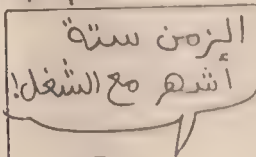 الزمن ستة
أشهر مع الشغل!